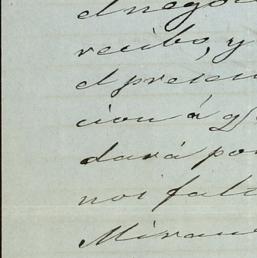 el nego
recibo, y
el presen
cion á q
dará po
nos falt
Miran